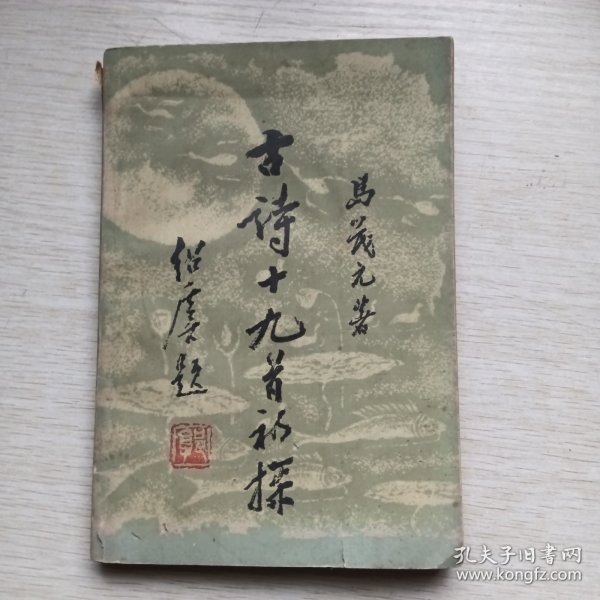 馬茂元著
古詩十九首初探
紹虞題
孔夫子旧书网
www.kongfz.com